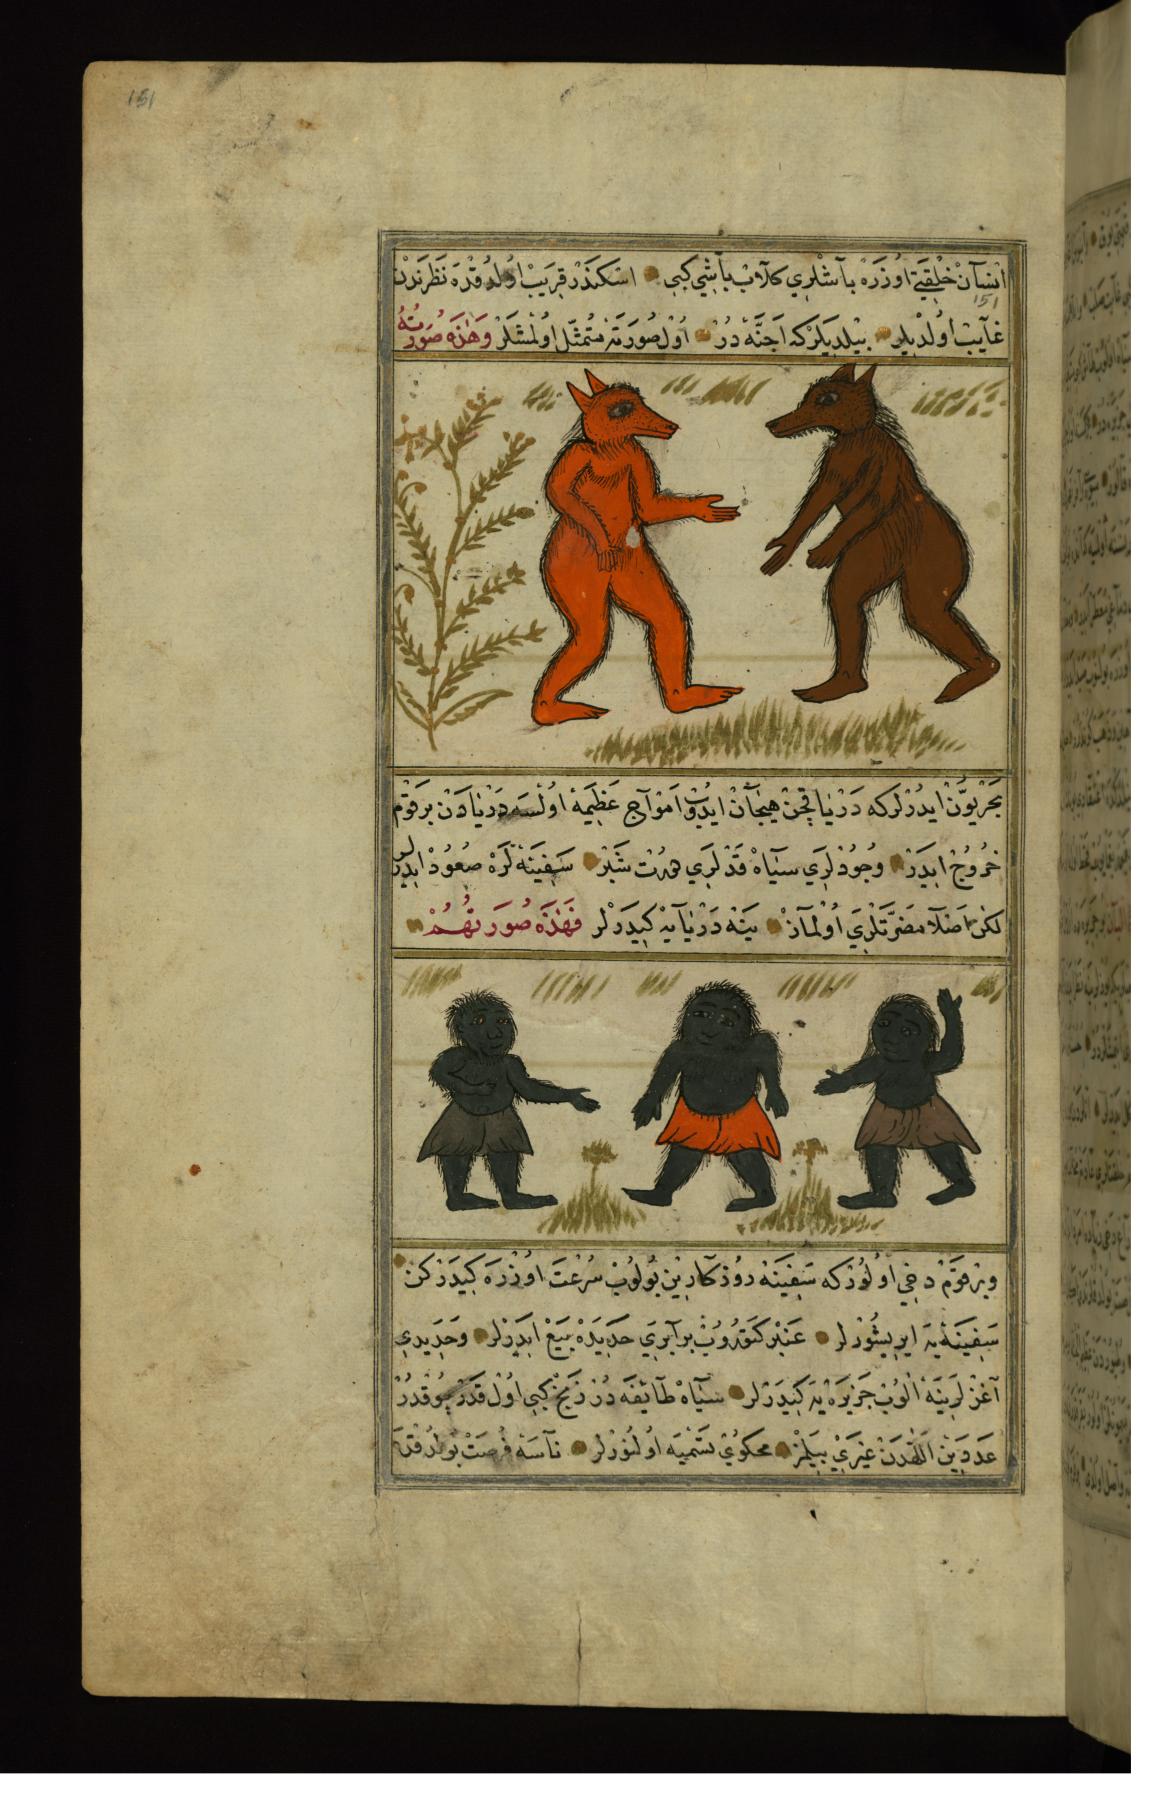 151
انسان خلقتی اوزره باشلری كلاب باشی كبی اسكندر قریب اولدقده نظرندن
151
غایب اولدیلر بیلدیلر كه اجنّه در اول صورته متمثّل اولمشلر وهذه صورته
بحریّون ایدرلر كه دریا قچن هیجان ایدوب امواج عظیمه اولسه دریادن بر قوم
خروج ایدر وجودلری سیاه قدلری درت شبر سفینه لره صعود ایدرلر
لكن اصلا مضرّتلری اولماز ینه دریایه كیدرلر فهذه صورتهم
وبر قوم دخی اولور كه سفینه روزكارین بولوب سرعت اوزره كیدركن
سفینه یه ایریشورلر عنبر كتوروب برابری حدیده بیع ایدرلر وحدیدی
آغزلرینه الوب جزیره یه كیدرلر سیاه طایفه در زنج كبی اول قدر چوقدر
عددین اللهدن غیری بیلمز محكوی تسمیه اولنورلر ناسه فرصت بولدقده